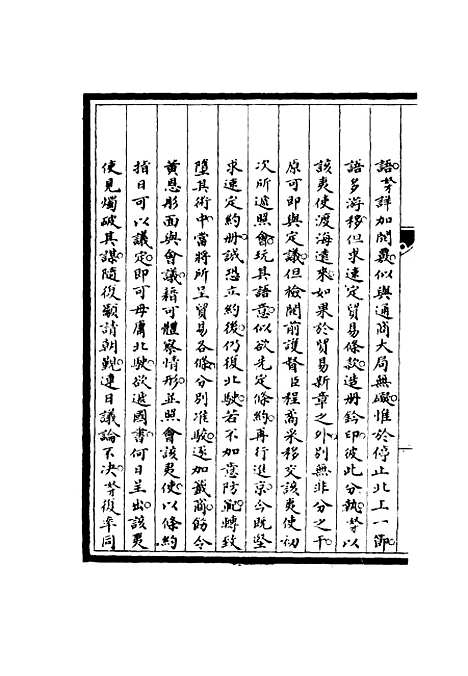 語。等詳加閱覈。似與通商大局無礙。惟於停止北上一節。
語多游移。但求速定貿易條款。造册鈐印。彼此分執。等以
該夷使渡海遠來。如果於貿易新章之外。別無非分之干。
原可即與定議。但檢閱前護督臣程矞采移交該夷使初
次所遞照會。玩其語意。似欲先定條約。再行進京。今既堅
求速定約册。誠恐立約後。仍復北駛。若不加意防範。轉致
墮其術中。當將所呈貿易各條。分別准駁。逐加籤商。飭令
黃恩彤面與會議。藉可體察情形。並照會該夷使。以條約
指日可以議定。即可毋庸北駛。欲遞國書。何日呈出。該夷
使見燭破其謀。隨復顓請朝覲。連日議論不決。等復率同